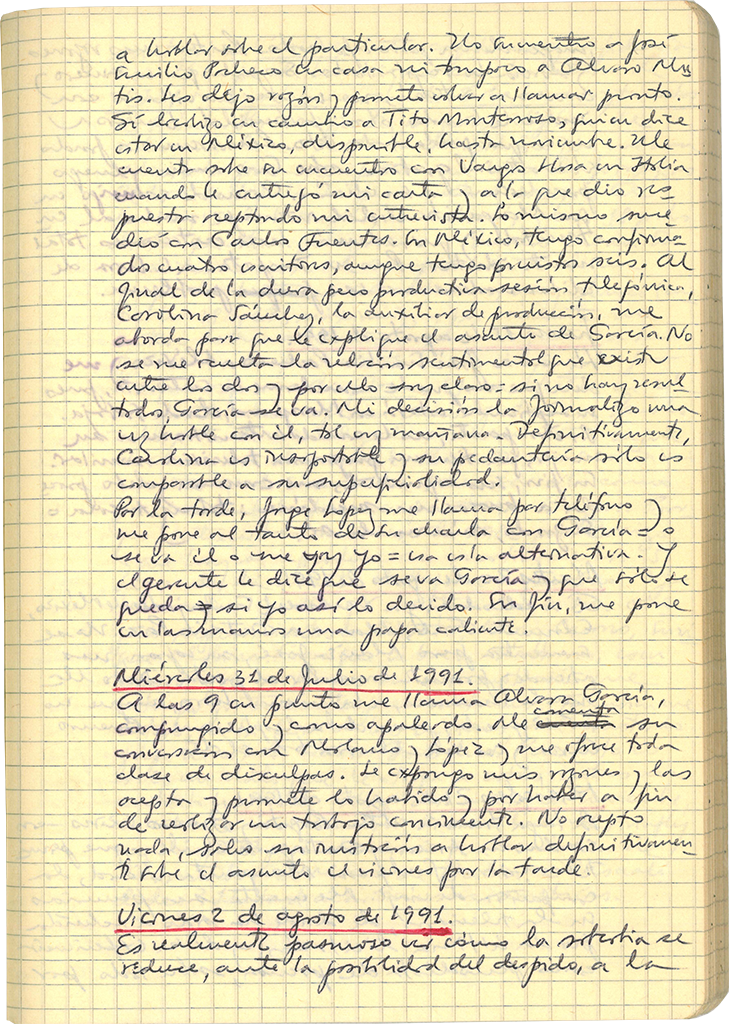 a hablar sobre el particular. No encuentro a José
Emilio Pacheco en casa ni tampoco a Alvaro Mu-
tis. Les dejo razón y prometo volver a llamar pronto.
Sí localizo en cambio a Tito Monterroso, quien dice
estar en México, disponible, hasta noviembre. Me
cuenta sobre su encuentro con Vargas Llosa en Italia
cuando le entregó mi carta y a la que dio res-
puesta aceptando mi entrevista. Lo mismo suce-
dió con Carlos Fuentes. En México, tengo confirma-
dos cuatro escritores, aunque tengo previstos seis. Al
final de la dura pero productiva sesión telefónica,
Carolina Sánchez, la auxiliar de producción, me
aborda para que le explique el asunto de García. No
se me oculta la relación sentimental que existe
entre los dos y por ello soy claro = si no hay resul-
tados, García se va. Mi decisión la formalizo una
vez hable con él, tal vez mañana. Definitivamente,
Carolina es insoportable y su pedantería sólo es
comparable a su superficialidad.
Por la tarde, Jorge López me llama por teléfono y
me pone al tanto de su charla con García = o
se va él o me voy yo = esa es la alternativa. Y
el gerente le dice que se va García y que sólo se
queda = si yo así lo decido. En fin, me pone
en las manos una papa caliente.
Miércoles 31 de Julio de 1991.
A las 9 en punto me llama Alvaro García,
compungido y como apaleado. Me comenta su
conversación con Molano y López y me ofrece toda
clase de disculpas. Le expongo mis razones y las
acepta y promete lo habido y por haber a fin
de realizar un trabajo convincente. No acepto
nada, salvo su invitación a hablar definitivamen-
te sobre el asunto el viernes por la tarde.
Viernes 2 de agosto de 1991.
Es realmente pasmoso ver cómo la soberbia se
reduce, ante la posibilidad del despido, a la